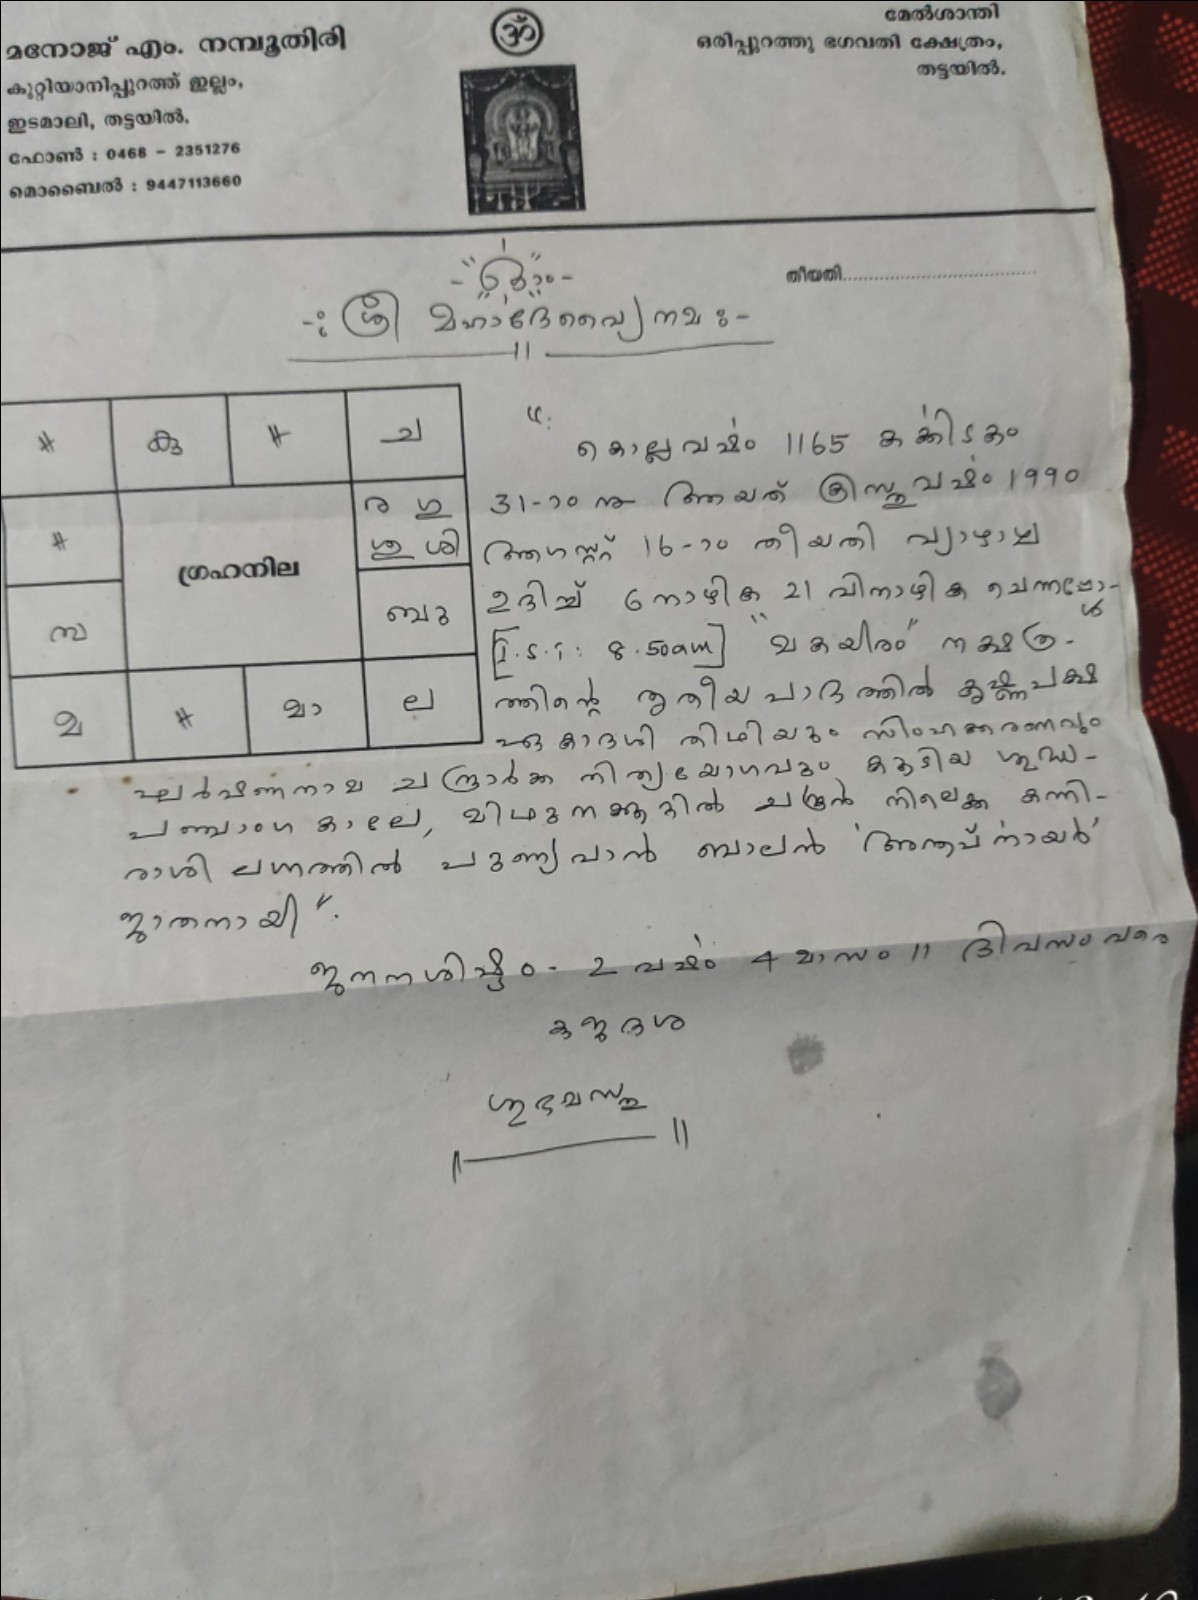 മനോജ് എം. നമ്പൂതിരി
കുറ്റിയാനിപ്പുറത്ത് ഇല്ലം,
ഇടമാലി, തട്ടയിൽ.
ഫോൺ : 0468 - 2351276
മൊബൈൽ : 9447113660
ॐ
മേൽശാന്തി
ഒരിപ്പുറത്തു ഭഗവതി ക്ഷേത്രം,
തട്ടയിൽ.
തീയതി
ഓം
ശ്രീ മഹാദേവ്യൈ നമഃ
# കു # ച
# ര ഗു
ശു ശി
ഗ്രഹനില
സ ബു
മ # മാ ല
കൊല്ലവർഷം 1165 കർക്കിടകം
31-ാം നു ആയത് ക്രിസ്തുവർഷം 1990
ആഗസ്റ്റ് 16-ാം തീയതി വ്യാഴാഴ്ച
ഉദിച്ച് 6 നാഴിക 21 വിനാഴിക ചെന്നപ്പോൾ
[I.S.T: 8.50am] "മകയിരം" നക്ഷത്ര-
ത്തിന്റെ തൃതീയ പാദത്തിൽ കൃഷ്ണപക്ഷ
ഏകാദശി തിഥിയും സിംഹക്കരണവും
ഹർഷണനാമ നിത്യയോഗവും കൂടിയ ശുദ്ധ-
പഞ്ചാംഗ കാലേ, മിഥുനക്കൂറിൽ ചന്ദ്രൻ നില്ക്കെ കന്നി-
രാശി ലഗ്നത്തിൽ പുണ്യവാൻ ബാലൻ നായർ'
ജാതനായി".
ജനനശിഷ്ടം - 2 വർഷം 4 മാസം 11 ദിവസം വരെ
കുജദശ
ശുഭമസ്തു